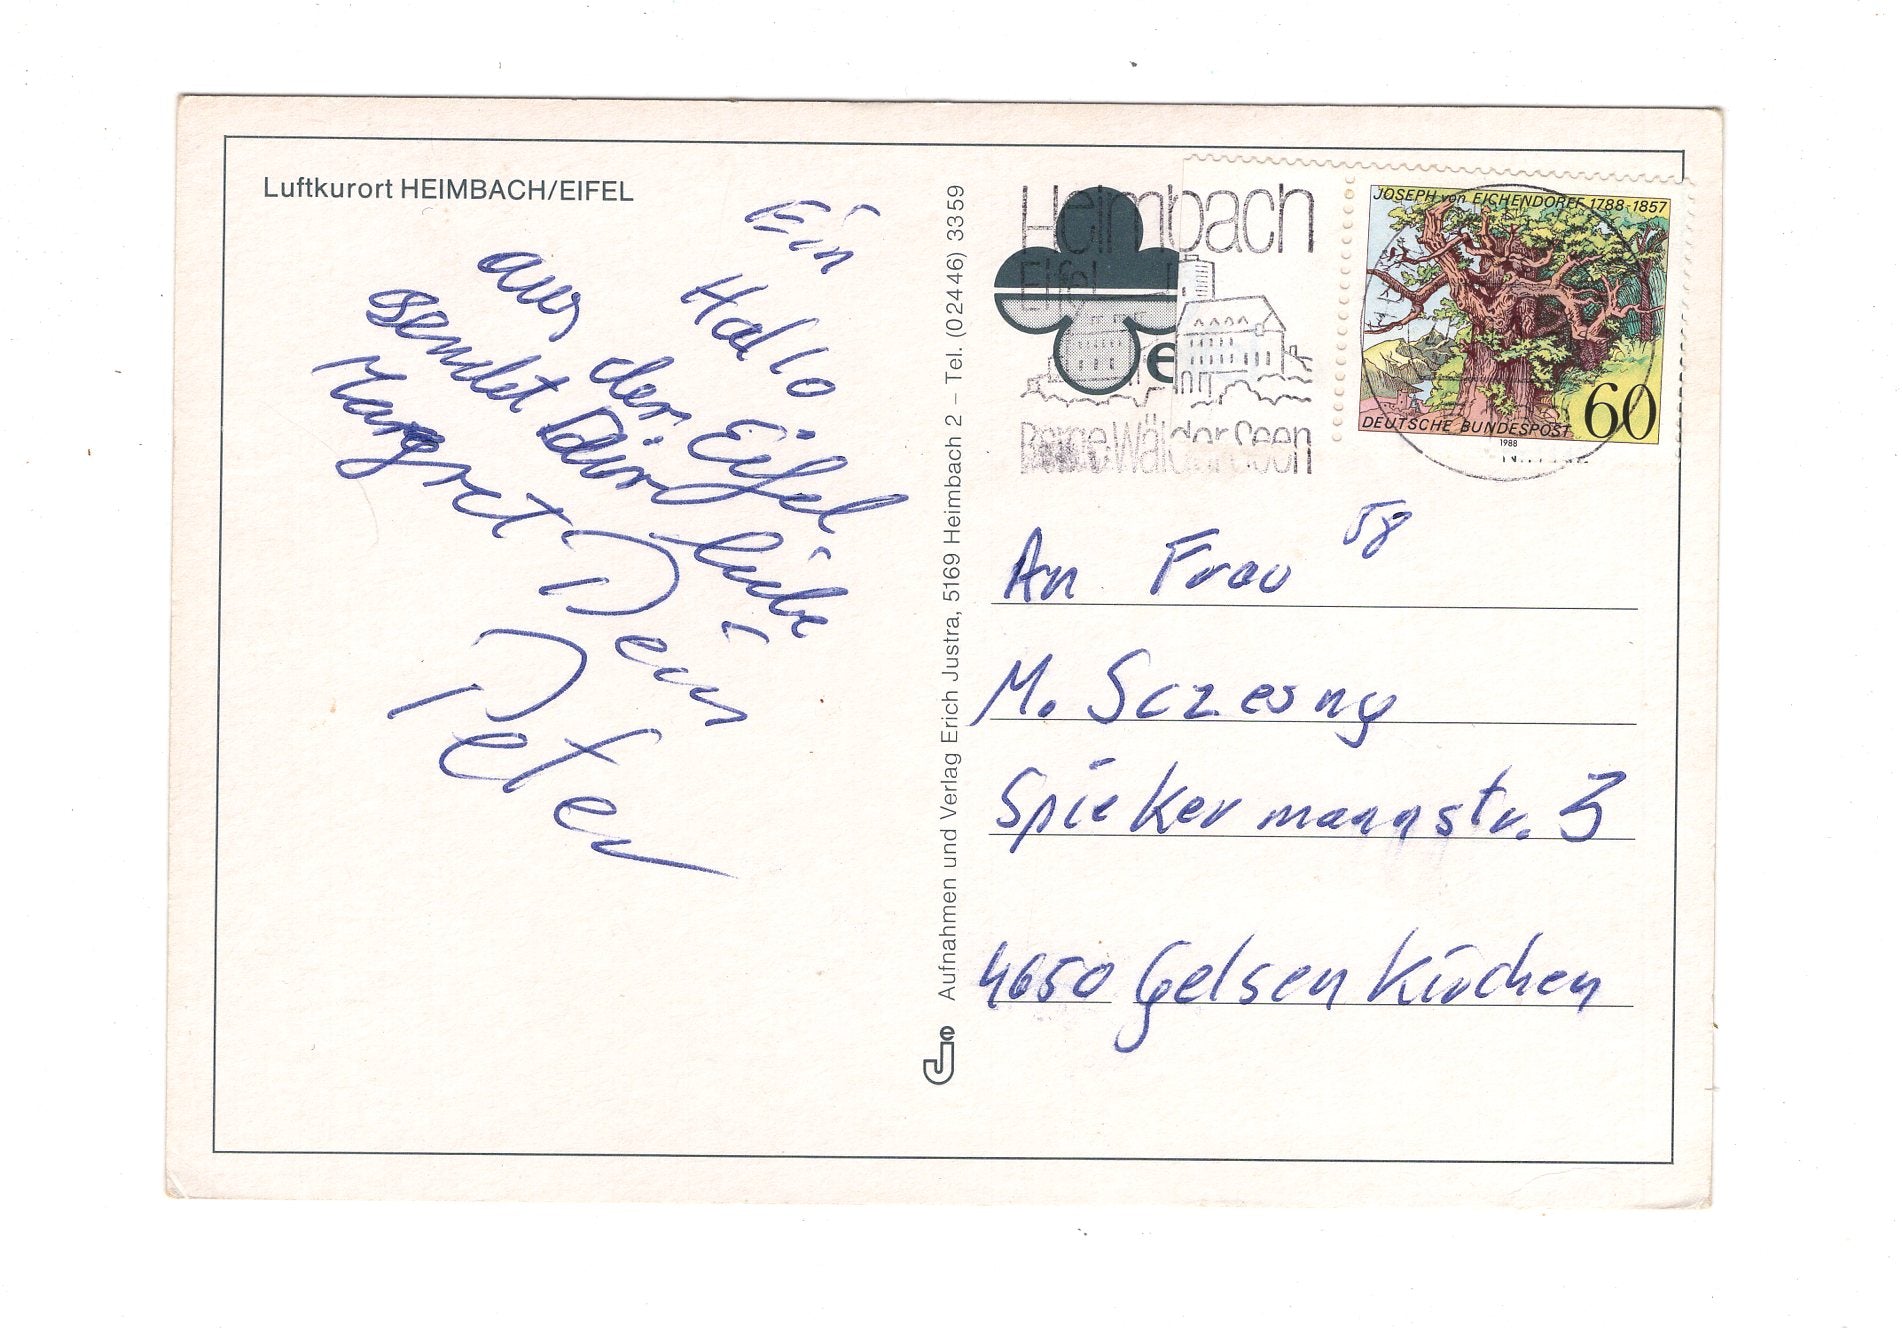 Luftkurort HEIMBACH/EIFEL
Ein
Hallo
aus der Eifel
sendet Dir liebe
Margret Dein
Peter
Aufnahmen und Verlag Erich Justra, 5169 Heimbach 2 – Tel. (02446) 3359
Heimbach
Eifel
Berge Wälder Seen
JOSEPH von EICHENDORFF 1788-1857
60
DEUTSCHE BUNDESPOST
1988
An Frau
M. Sczesny
Spiekermannstr. 3
4650 Gelsenkirchen